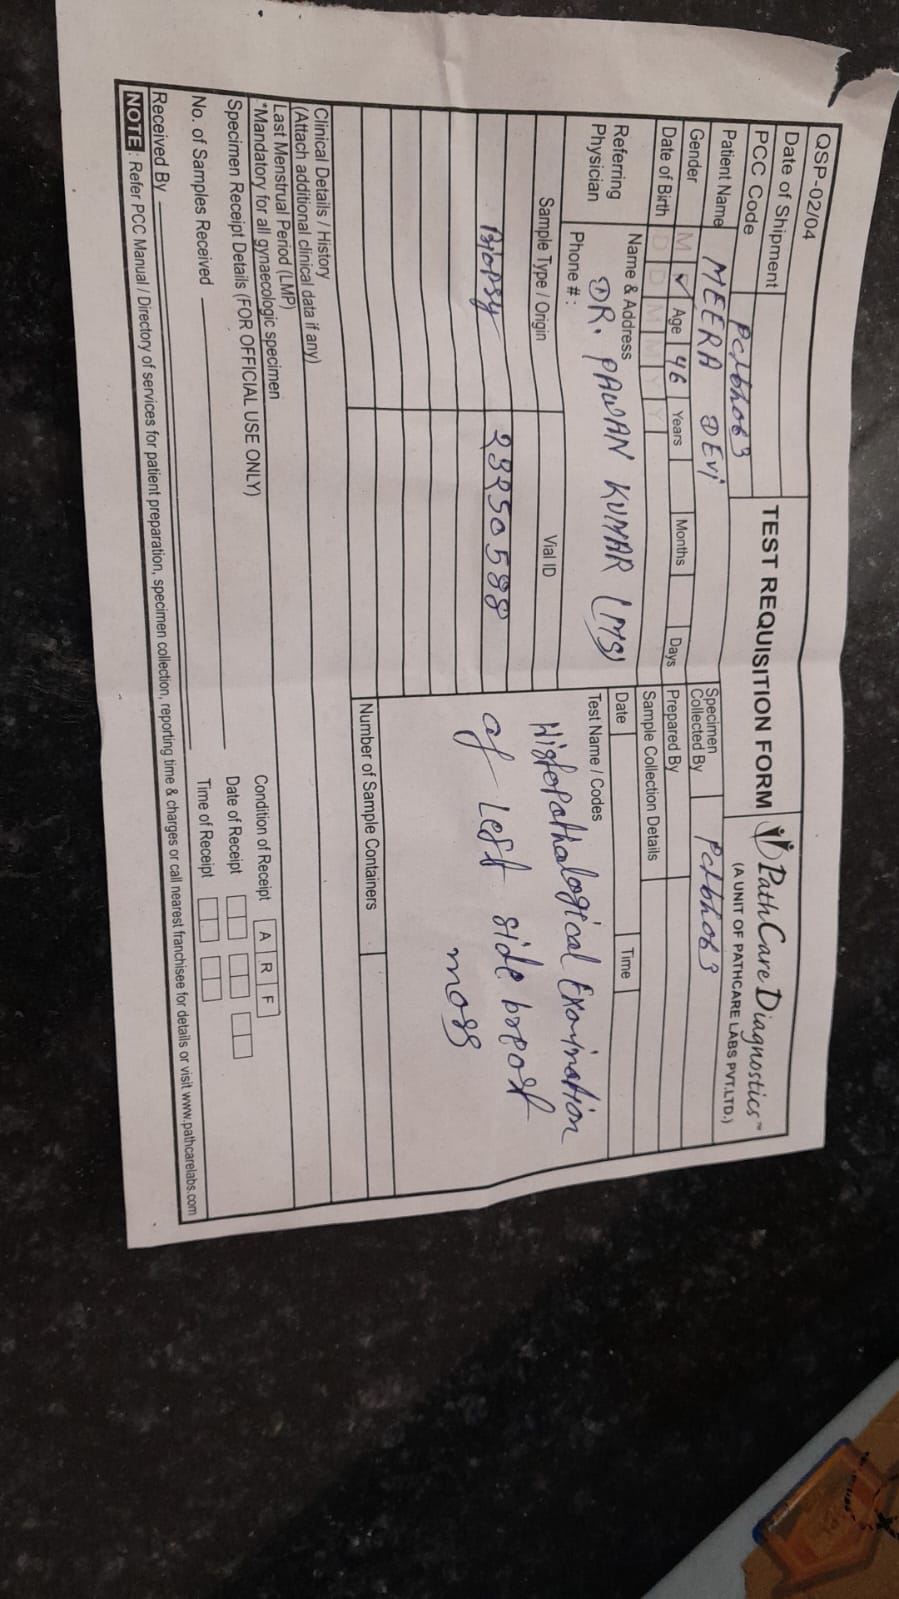 QSP-02/04
Date of Shipment
TEST REQUISITION FORM
PathCare Diagnostics™
(A UNIT OF PATHCARE LABS PVT.LTD.)
PCC Code
Patient Name MEERA DEVi
Specimen Collected By
Gender M ✓ Age 46 Years Months Days
Prepared By
Date of Birth D D M M Y Y
Sample Collection Details
Referring Physician
Name & Address
DR. PAWAN KUMAR (MS)
Phone # :
Date Time
Sample Type / Origin Vial ID Test Name / Codes
Biopsy
Histopathalogical Examination
of Left side breast
mass
Number of Sample Containers
Clinical Details / History
(Attach additional clinical data if any)
Last Menstrual Period (LMP)
*Mandatory for all gynaecologic specimen
Specimen Receipt Details (FOR OFFICIAL USE ONLY)
Condition of Receipt A R F
No. of Samples Received
Date of Receipt
Received By
Time of Receipt
NOTE : Refer PCC Manual / Directory of services for patient preparation, specimen collection, reporting time & charges or call nearest franchisee for details or visit www.pathcarelabs.com